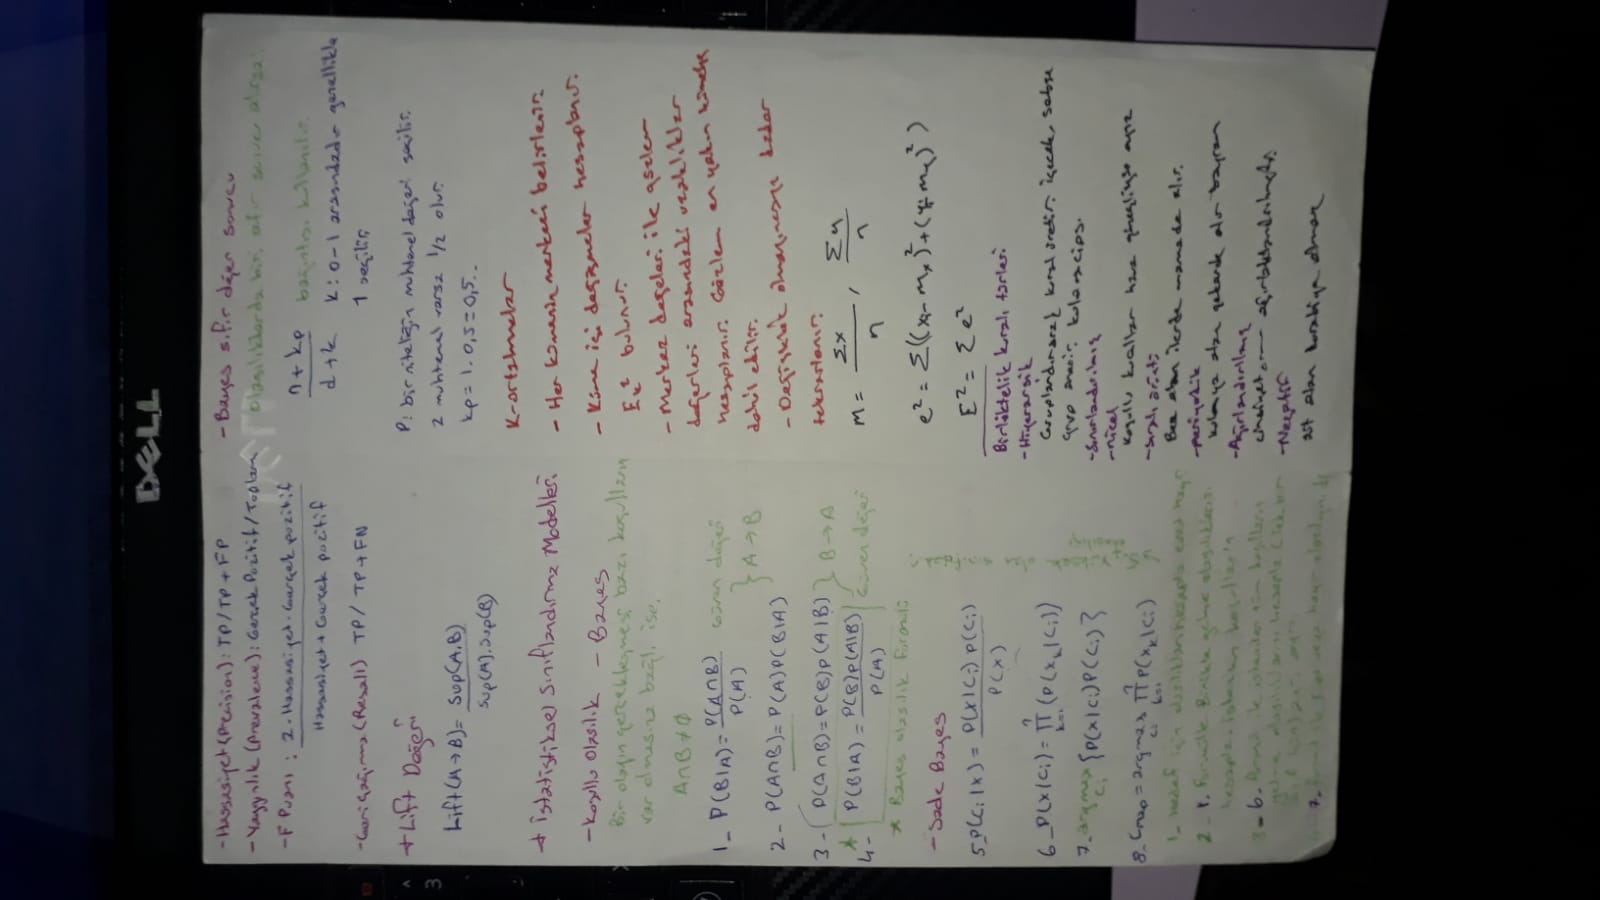 DELL
- Hassasiyet (Precision): TP/TP+FP
- Yaygınlık (Prevalence): Gerçek Pozitif/Toplam
- F Puanı : 2.Hassasiyet.Gerçek pozitif
Hassasiyet + Gerçek pozitif
- Geri çağırma (Recall) TP/ TP+FN
+ Lift Değeri
Lift(A→B)= Sup(A,B)
Sup(A).Sup(B)
+ istatistiksel Sınıflandırma Modelleri
- Koşullu Olasılık - Bayes
Bir olayın gerçekleşmesi bazı koşulların
var olmasına bağlı ise.
A∩B≠∅
1_ P(B|A)= P(A∩B) Güven değeri
P(A)
} A→B
2- P(A∩B)= P(A)P(B|A)
3- P(A∩B)=P(B)P(A|B) } B→A
4- * P(B|A) = P(B)P(A|B) Güven değeri
P(A)
* Bayes olasılık formülü
- Sade Bayes
5_P(Ci|x)= P(X|Ci) P(Ci)
P(X)
6_P(X|Ci)= n∏k=1 (P(xk|Ci))
7_ argmax Ci {P(X|Ci)P(Ci)}
8- = argmax Ci n∏k=1 P(xk|Ci)
1_ Hedef için olasılıkları hesapla
2_ 1. Formülle Birlikte gelme olasılıklarını
hesapla.
3_6. ile istenen tüm
gelme olasılıklarını hesapla
7.
- Bayes sıfır değer sorunu
Olasılıklarda biri sıfır
n+kp bağıntısı kullanılır
d+k k: 0-1 arasındadır genellikle
1 seçilir
P: bir niteliğin muhtemel değeri seçilir.
2 muhtemel varsa 1/2 olur.
kp= 1. 0,5=0,5..
K-ortalamalar
- Her kümenin merkezi belirlenir.
- Küme içi değişmeler hesaplanır.
Ek² bulunur.
- Merkez değerleri ile gözlem
değerleri arasındaki uzaklıklar
hesaplanır. Gözlem en yakın kümeye
dahil edilir.
- Değişiklik olmayıncaya kadar
tekrarlanır.
M= Σx , Σy
n n
e²= Σ((xi-mx)²+(yi-my)²)
E²= Σe²
Birliktelik kuralı türleri
- Hiyerarşik
Gruplandırarak kural üretir. içecek, sebze
grup kola cips.
- Sınırlandırılmış
- nicel
Koşullu kurallar
- sıralı örüntü
Bez alan ilerde mamada alır.
- periyodik
kolonya alan şekerde alır bayram
- Ağırlandırılmış
cinsiyet ağırlıklandırılmıştır.
- Negatif
süt alan kurabiye almaz